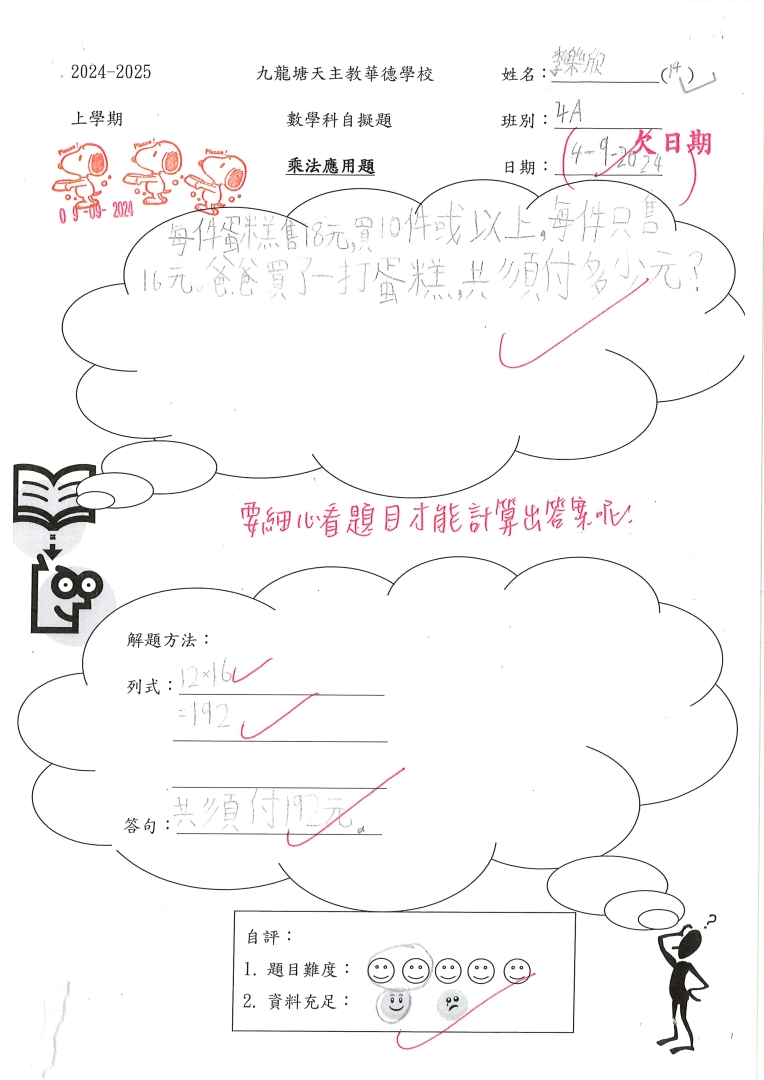 2024-2025 九龍塘天主教華德學校 姓名：李樂欣 (14)
上學期 數學科自擬題 班別：4A
欠日期
乘法應用題 日期：4-9-2024
Please! Please! Please!
09-09-2024
每件蛋糕售18元,買10件或以上,每件只售
16元。爸爸買了一打蛋糕,共須付多少元?
要細心看題目才能計算出答案呢!
解題方法：
列式：12×16
=192
答句：共須付192元。
?
自評：
1. 題目難度：
2. 資料充足：